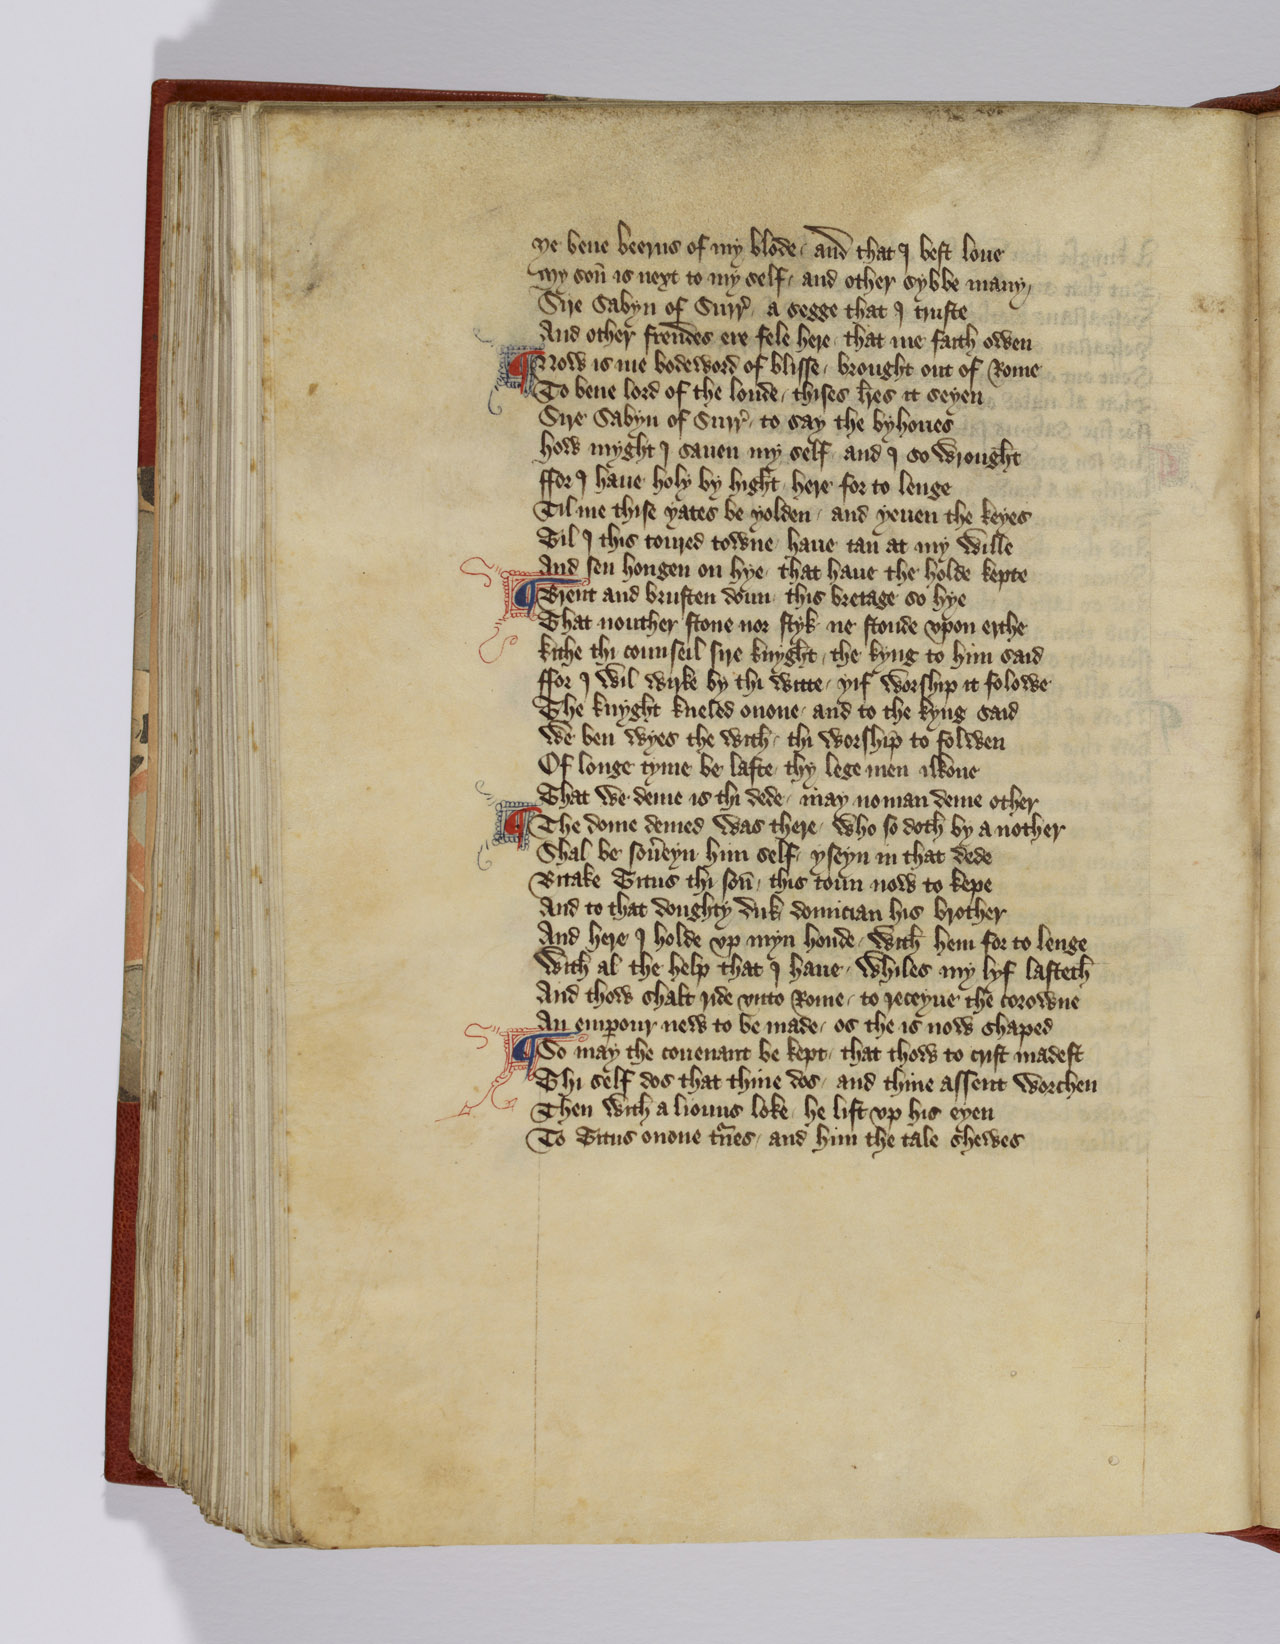 ye bene beerns of my blode / and that I best loue
My son̄ is next to my self / and other sybbe many /
Sire Sabyn of Surr̉ / a segge that I truste
And other frendes ere fele here / that me faith owen
¶ Now is me bodeword of blisse / brought out of Rome
To bene lord of the londe / thises l̄res it seyen
Sire Sabyn of Surr̉ / to say the byhoues
how myght I sauen my self / and I so wrought
ffor I haue holy by hight / here for to lenge
Til me thise yates be yolden / and yeuen the keyes
Til I this toured towne / haue tan at my wille
And sen hongen on hye / that haue the holde kepte
¶ Brent and brusten doun / this bretage so hye
That nouther stone nor styk / ne stonde vpon erthe
kithe thi counseil sire knyght / the kyng to him said
ffor I wil wirke by thi witte / yif worship it folowe
The knyght kneled onone / and to the kyng said
We ben wyes the with / thi worship to folwen
Of longe tyme be laste / thy lege men ilkone
That we deme is thi dede / may no man deme other
¶ The dome demed was there / who so doth by a nother
Shal be soūeyn him self / yseyn in that dede
Bitake Titus thi son̄ / this toun now to kepe
And to that doughty duk / domician his brother
And here I holde vp myn honde / with hem for to lenge
With al the help that I haue / whiles my lyf lasteth
And thow shalt ride vnto Rome / to receyue the corowne
An emꝑour new to be made / os the is now shaped
¶ So may the couenant be kept / that thow to crist madest
Thi self dos that thine dos / and thine assent worchen
Then with a liouns loke / he lift vp his eyen
To Titus onone t̄nes / and him the tale shewes